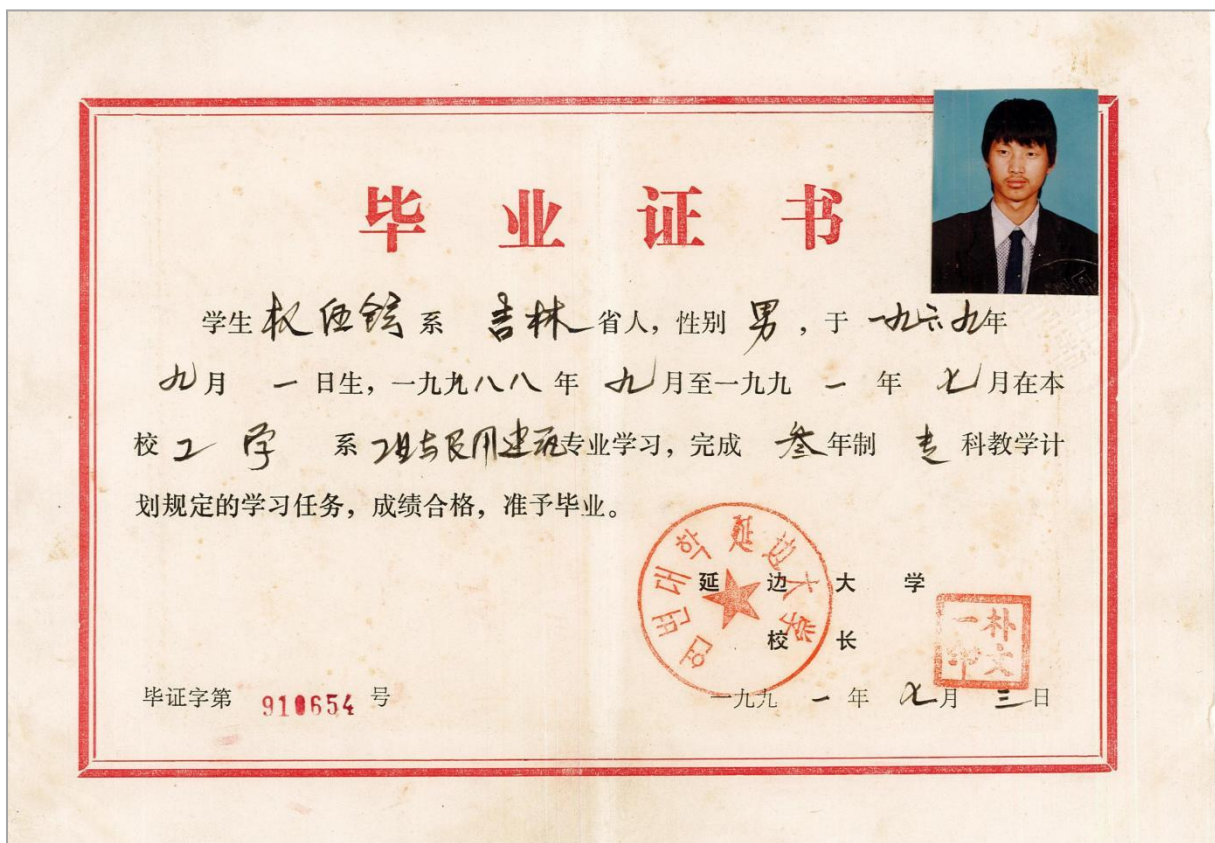 毕业证书
学生权伍铉系 吉林省人，性别 男，于 一九六九年
九月 一日生，一九九八八年 九月至一九九 一 年 七月在本
校工学 系 工业与民用建筑专业学习，完成 叁年制 专科教学计
划规定的学习任务，成绩合格，准予毕业。
연변대학 延边大学
延边大学
校长
朴文一印
毕证字第 910654 号
一九九 一 年 七月 三日